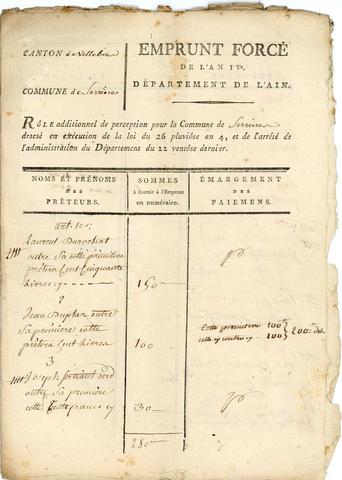 CANTON de Villebois
EMPRUNT FORCÉ
DE L'AN IVe.
COMMUNE de Serrieres
DÉPARTEMENT DE L'AIN.
RÔLE additionnel de perception pour la Commune de Serrieres
dressé en exécution de la loi du 26 pluviôse an 4, et de l'arrêté de
l'administration du Département du 22 ventôse dernier.
NOMS ET PRÉNOMS
DES
PRÊTEURS.
SOMMES
à fournir à l'Emprunt
en numéraire.
ÉMARGEMENT
DES
PAIEMENS.
art. 1er.
Laurent Durochat
outre sa cotte primitive
prêtera Cent Cinquante
Livres cy 150
2
Jean Duplan outre
sa première cotte
prêtera Cent Livres 100
Cotte primitive 100
celle cy contre cy 100
200
3
Joseph
outre sa première
cotte trente francs cy 30
280